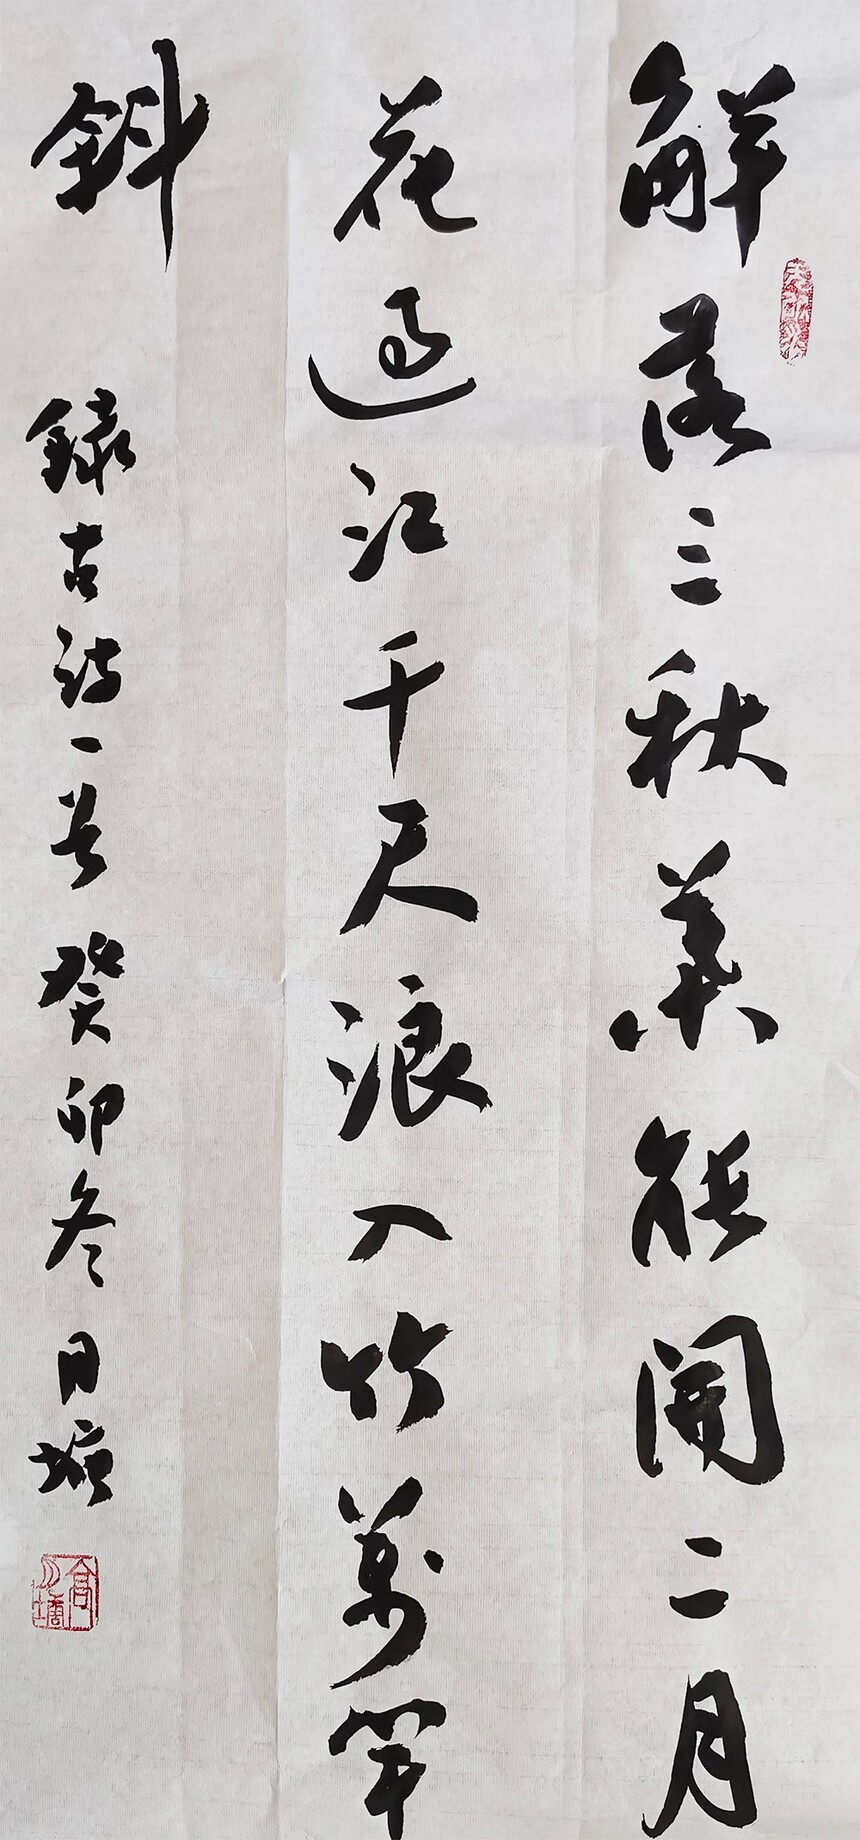 解落三秋葉能開二月
花過江千尺浪入竹萬竿
斜
錄古詩一首癸卯冬月塘
高月塘